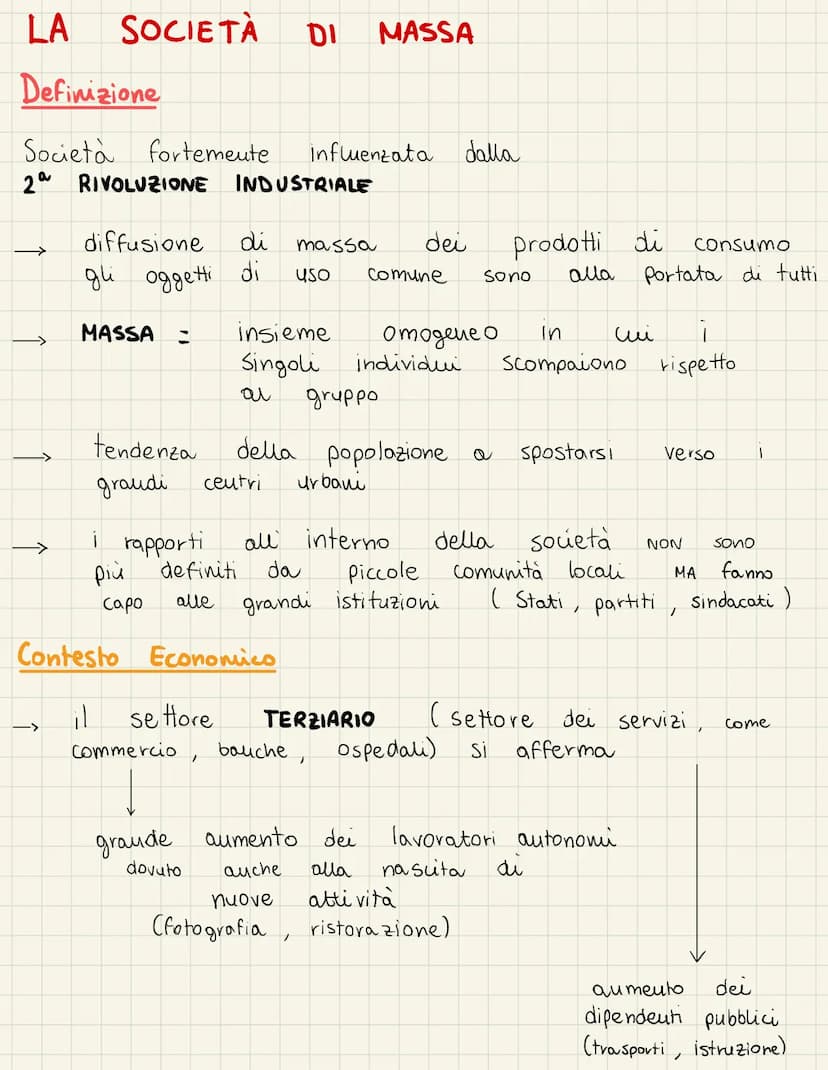 LA SOCIETÀ DI MASSA
Definizione
Società fortemente influenzata dalla
2ª RIVOLUZIONE INDUSTRIALE
→ diffusione di massa dei prodotti di consumo
gli oggetti di uso comune sono alla portata di tutti
→ MASSA = insieme omogeneo in cui i
singoli individui scompaiono rispetto
al gruppo
→ tendenza della popolazione a spostarsi verso i
grandi centri urbani
→ i rapporti all'interno della società NON sono
più definiti da piccole comunità locali MA fanno
capo alle grandi istituzioni (Stati, partiti, sindacati)
Contesto Economico
→ il settore TERZIARIO (settore dei servizi, come
commercio, banche, ospedali) si afferma
grande aumento dei lavoratori autonomi
dovuto anche alla nascita di
nuove attività
(fotografia, ristorazione)
aumento dei
dipendenti pubblici
(trasporti, istruzione)